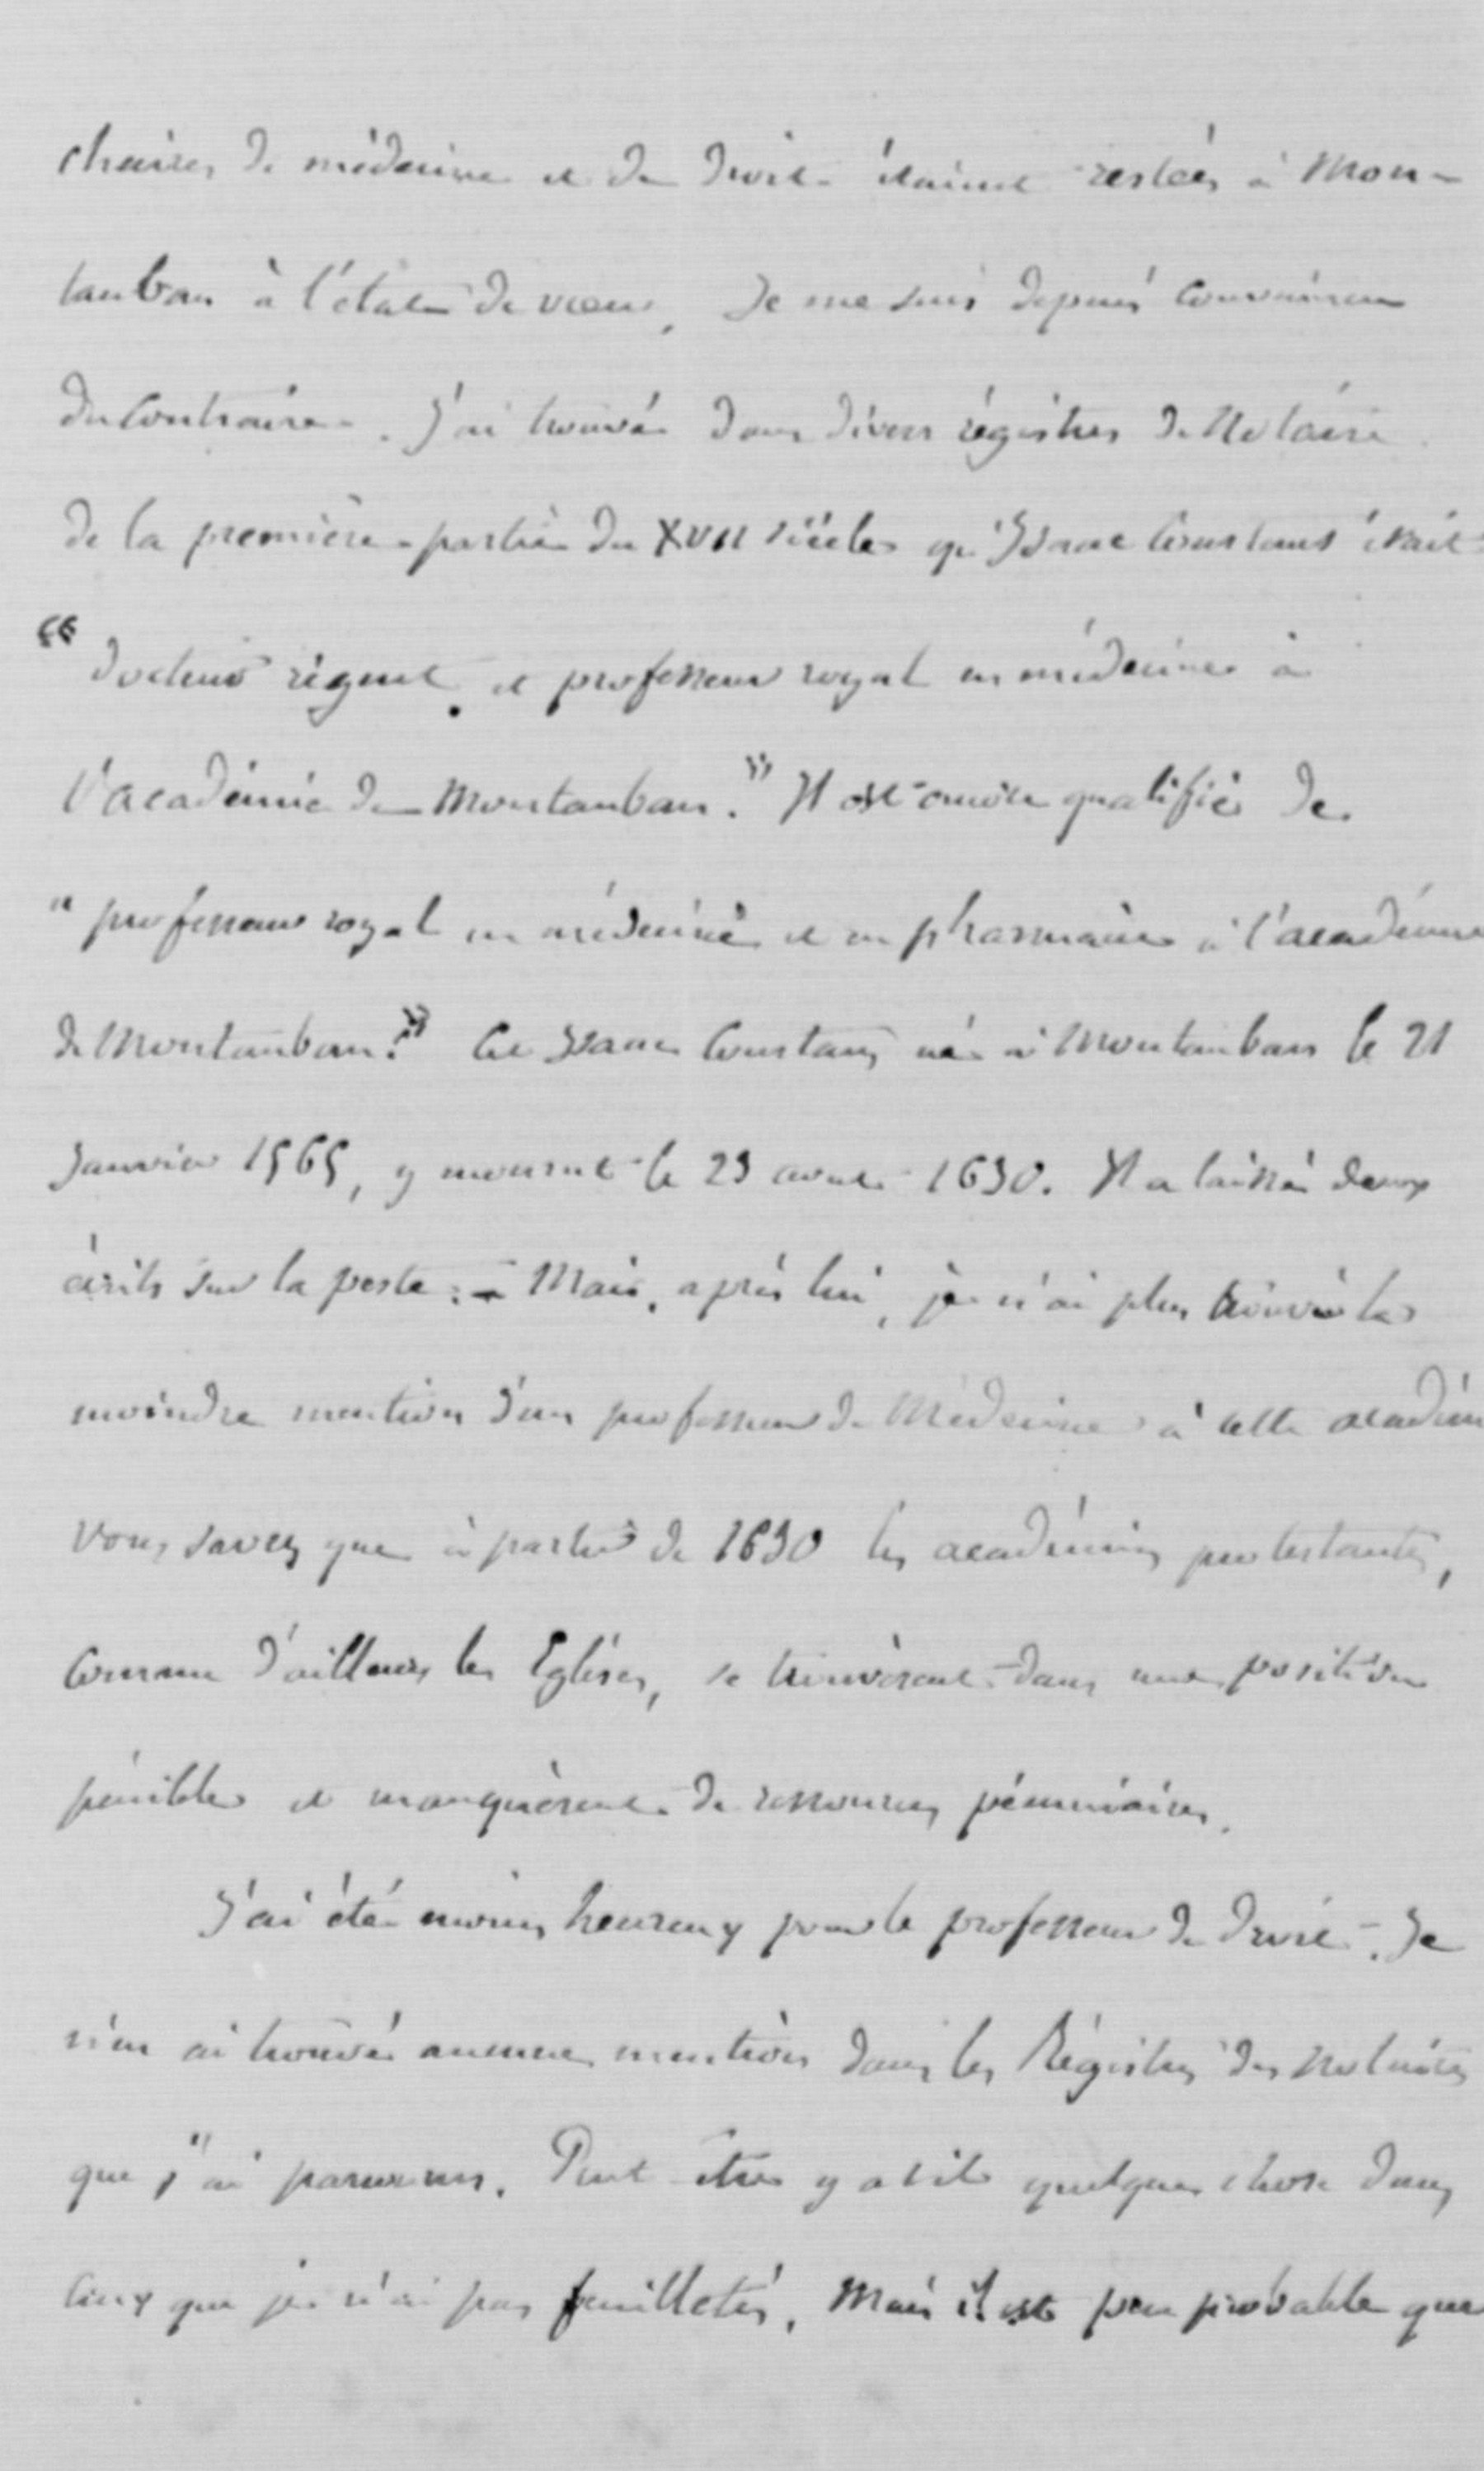 chaires de médecine et de droit étaient restées à Mon-
tauban à l'état de vœu, Je me suis depuis convaincu
du contraire. J'ai trouvé dans divers régistres de Notaire
de la première partie du XVII siècle qu'Isaac Constans était
" docteur régent et professeur royal en médecine à
l'académie de Montauban." Il est encore qualifié de
" professeur royal en médecine et en pharmacie à l'académie
de Montauban." Cet Isaac Constans né à Montauban le 21
Janvier 1565, y mourut le 23 avril 1630. Il a laissé deux
écrits sur la peste. - Mais, après lui, je n'ai plus trouvé la
moindre mention d'un professeur de Médecine à cette académie
Vous savez que à partir de 1630 les académies protestantes,
comme d'ailleurs les Eglises, se trouvèrent dans une position
pénible et manquèrent de ressources pécuniaires.
J'ai été moins heureux pour le professeur de droit. Je
n'en ai trouvé aucune mention dans les Régistres des Notaires
que j'ai parcourus. Peut être y a t il quelque chose dans
ceux que je n'ai pas feuilletés, Mais il est peu probable que